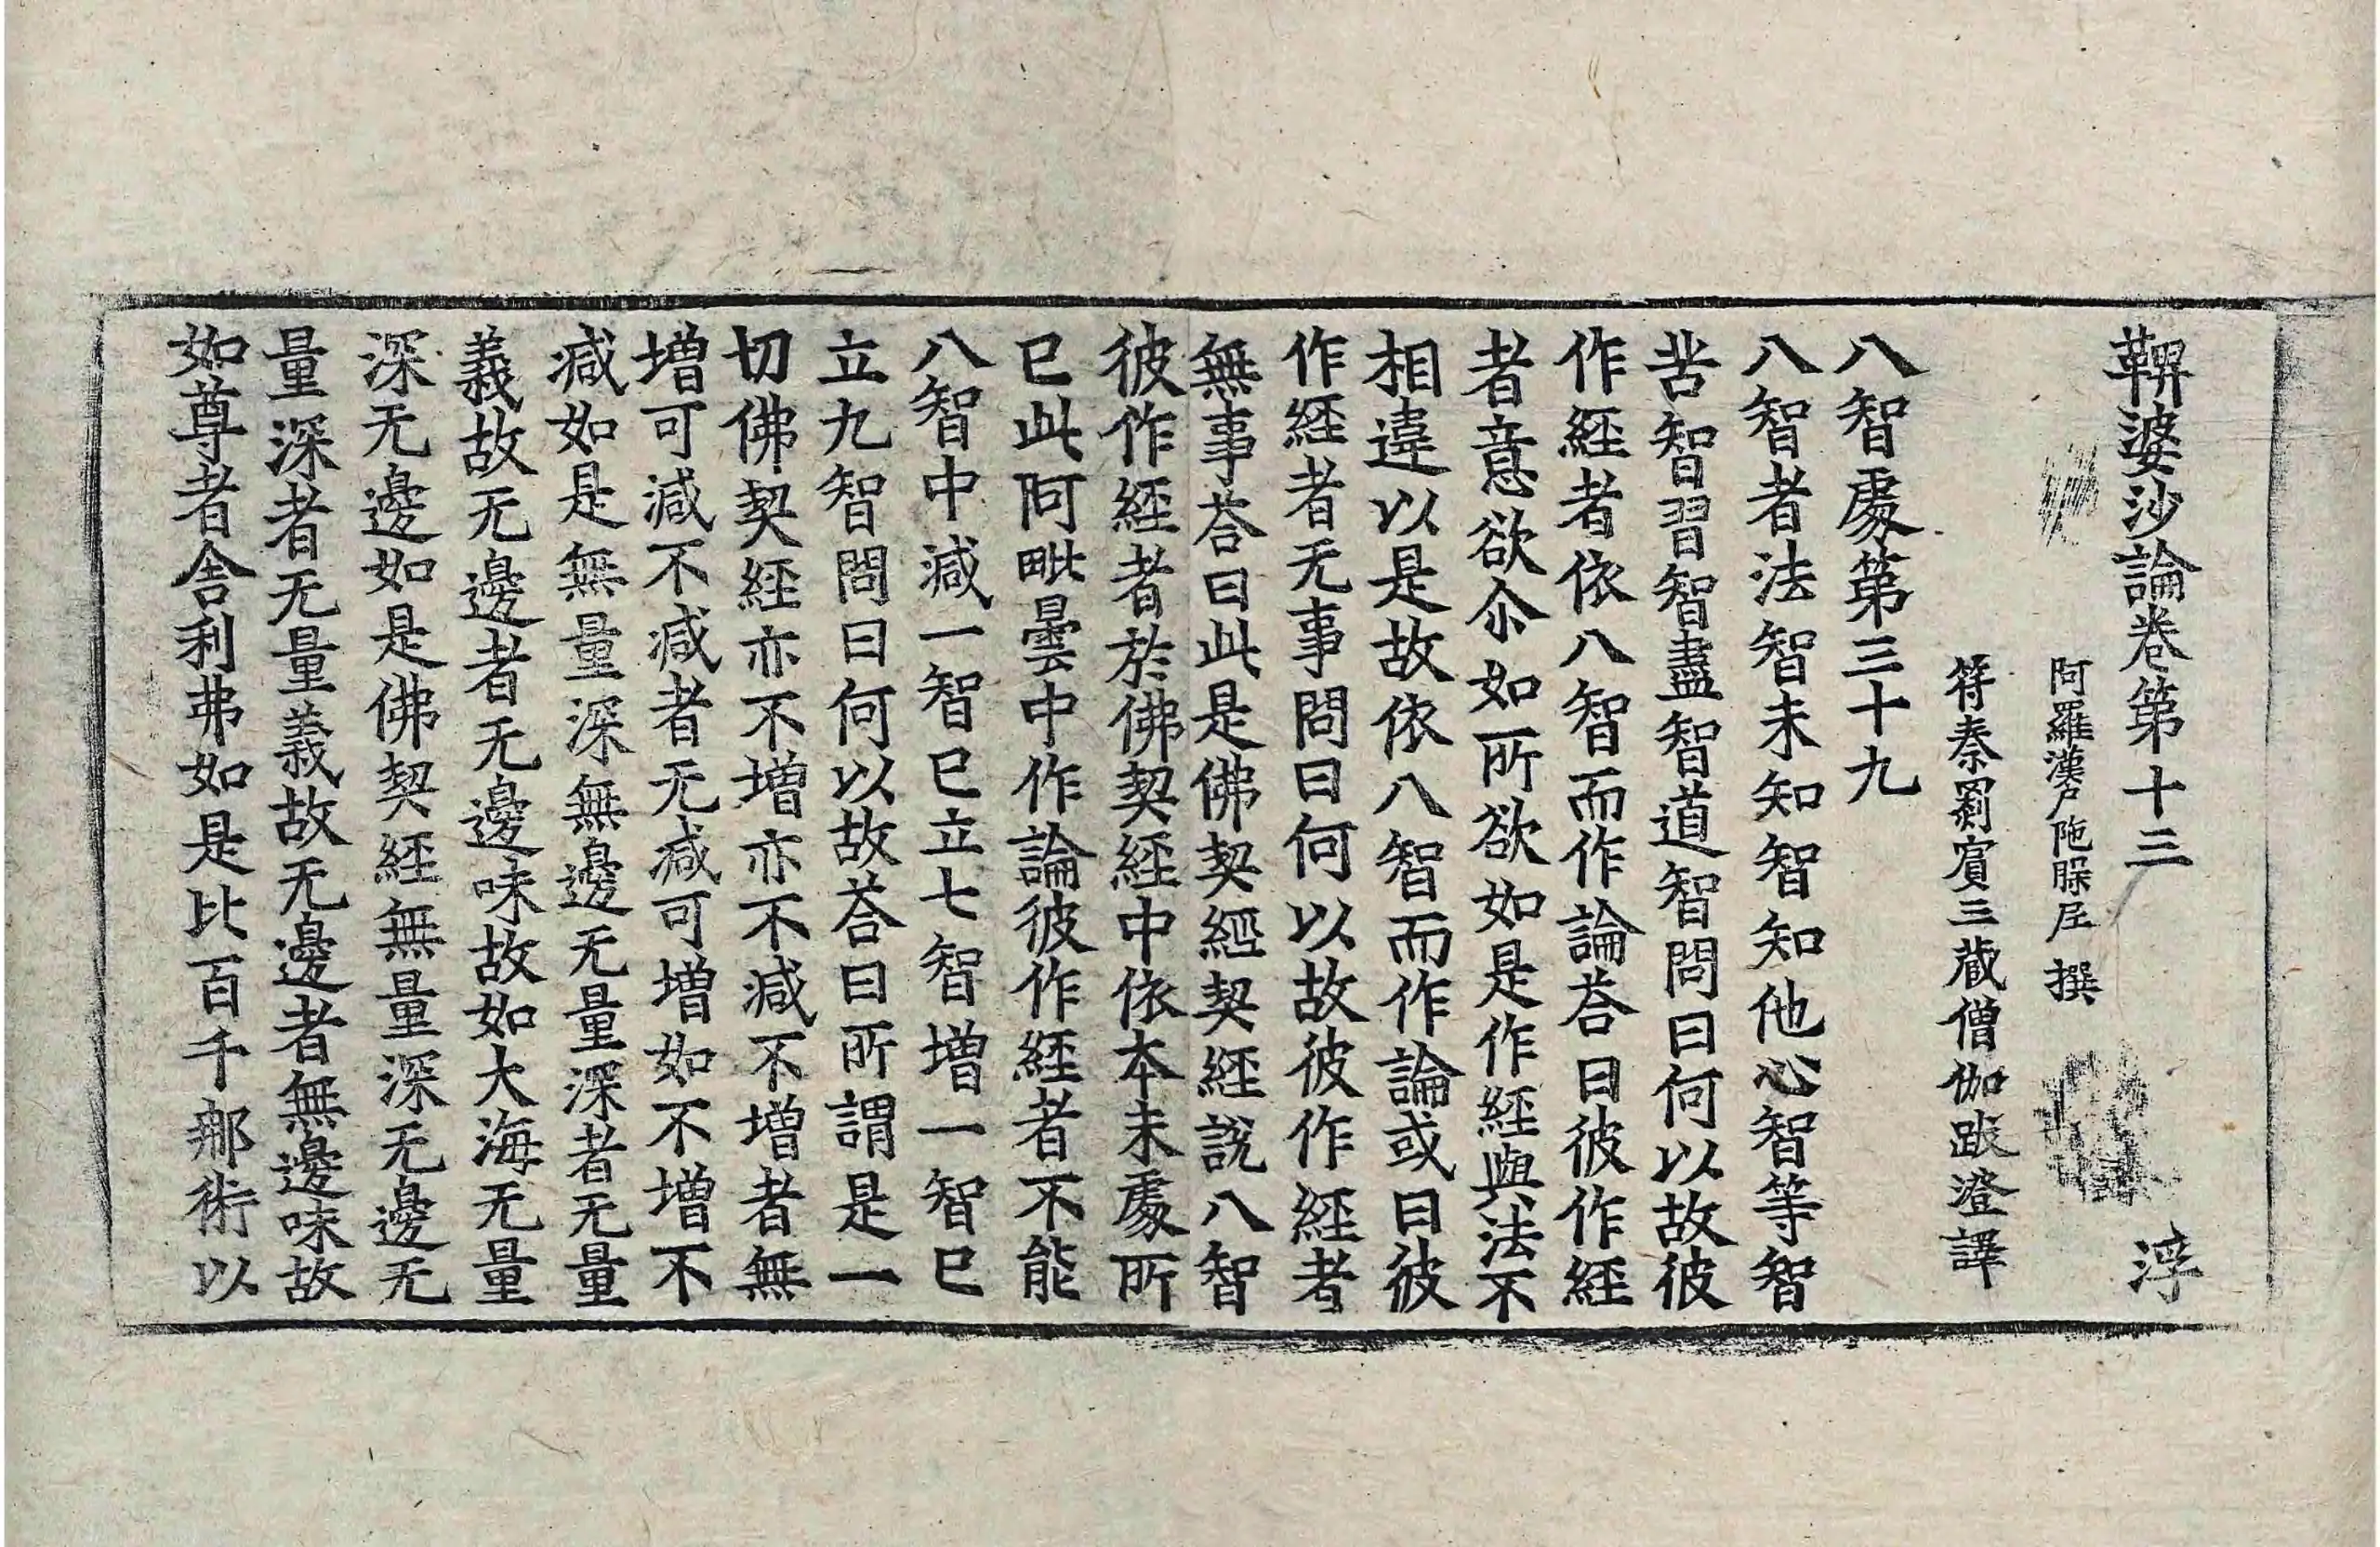 鞞婆沙論卷第十三 浮
阿羅漢尸陁槃尼 撰
符秦罽賓三藏僧伽跋澄譯
八智處第三十九
八智者法智未知智知他心智等智
苦智習智盡智道智問曰何以故彼
作經者依八智而作論荅曰彼作經
者意欲尒如所欲如是作經與法不
相違以是故依八智而作論或曰彼
作経者无事問曰何以故彼作經者
無事荅曰此是佛契經契経說八智
彼作經者於佛契経中依本末處所
已此阿毗曇中作論彼作経者不能
八智中減一智已立七智增一智已
立九智問曰何以故荅曰所謂是一
切佛契経亦不增亦不減不增者無
增可減不減者无減可增如不增不
減如是無量深無邊无量深者无量
義故无邊者无邊味故如大海无量
深无邊如是佛契経無量深无邊无
量深者无量義故无邊者無邊味故
如尊者舍利弗如是比百千𨚗術以